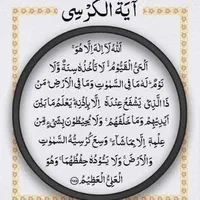 آيَةُ الْكُرْسِى
اَللّٰهُ لَاۤ اِلٰهَ اِلَّا هُوَ ۚ
اَلْحَىُّ الْقَيُّوْمُ ۚ لَا تَاْخُذُهٗ سِنَةٌ وَّلَا
نَوْمٌ ؕ لَهٗ مَا فِى السَّمٰوٰتِ وَمَا فِى الْاَرْضِ ؕ مَنْ
ذَا الَّذِىْ يَشْفَعُ عِنْدَهٗۤ اِلَّا بِاِذْنِهٖ ؕ يَعْلَمُ مَا بَيْنَ
اَيْدِيْهِمْ وَمَا خَلْفَهُمْ ۚ وَلَا يُحِيْطُوْنَ بِشَىْءٍ مِّنْ
عِلْمِهٖۤ اِلَّا بِمَا شَآءَ ۚ وَسِعَ كُرْسِيُّهُ السَّمٰوٰتِ
وَالْاَرْضَ ۚ وَلَا يَئُوْدُهٗ حِفْظُهُمَا ۚ وَهُوَ
الْعَلِىُّ الْعَظِيْمُ